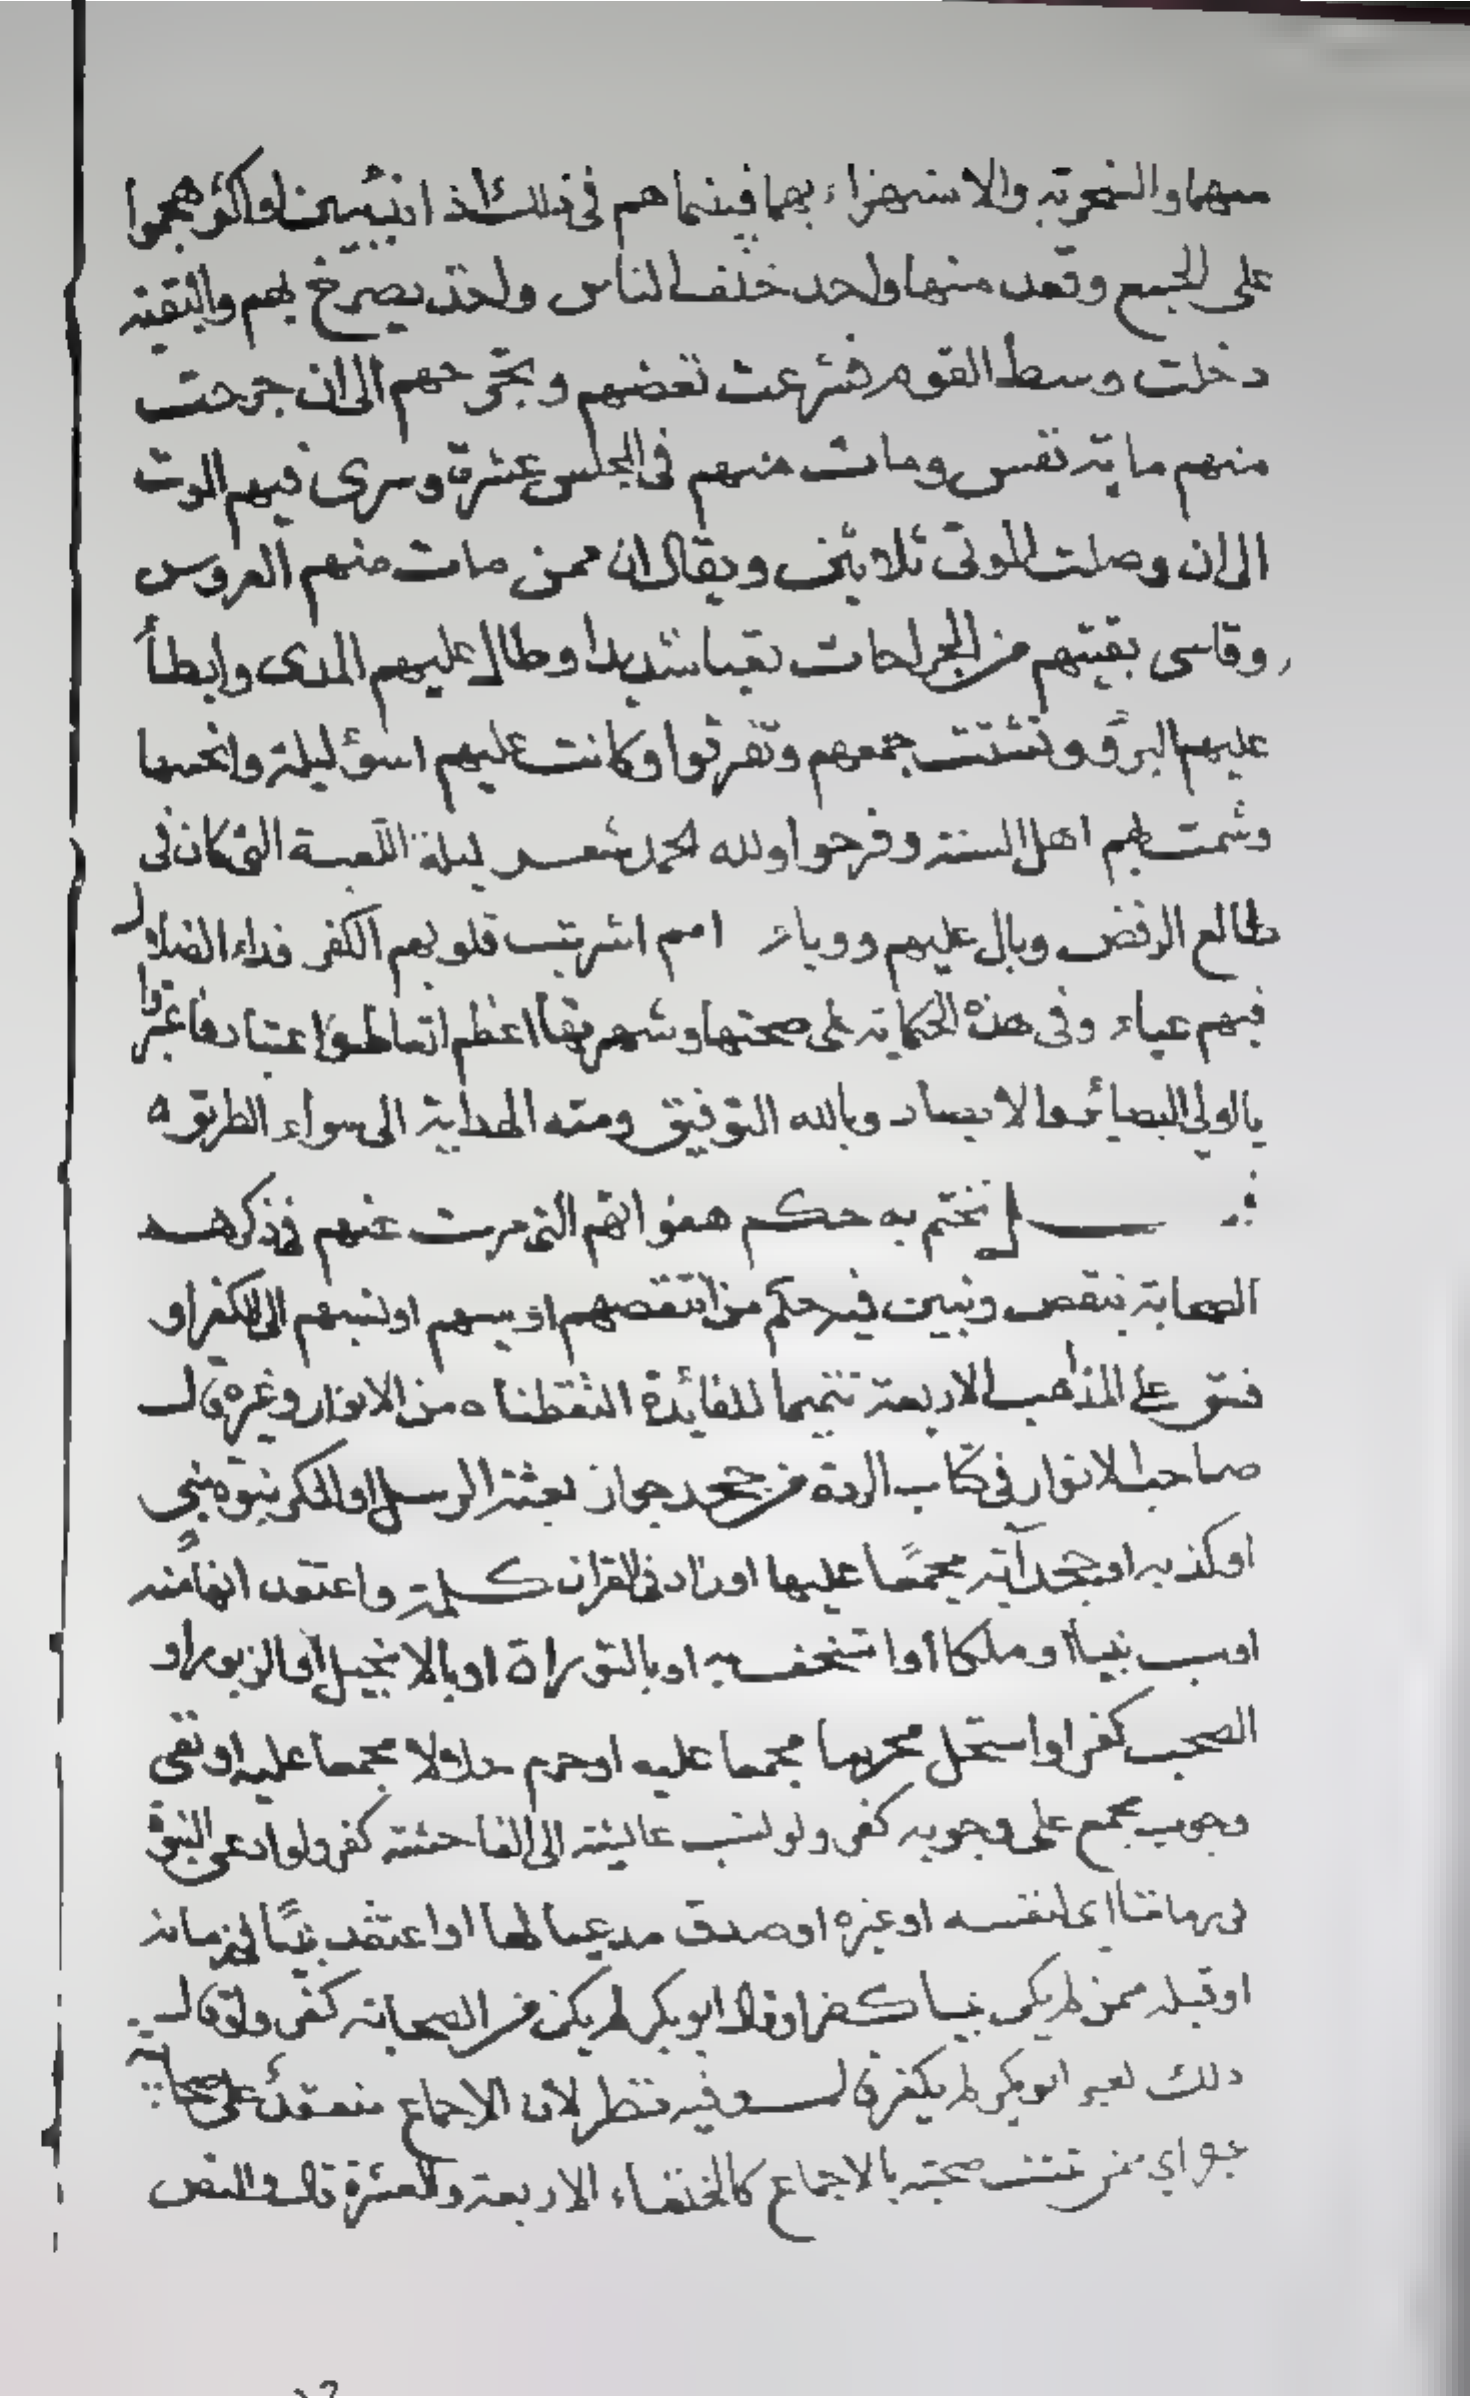 منهما والسخرية والاستهزاء بهما فبينما هم في ذلك اذا هجموا
على الجميع وقعد منها واحد خلف الناس واخذ يصرخ بهم والبقية
دخلت وسط القوم فشرعت تعضهم وتجرحهم الى ان جرحت
منهم ماية نفس ومات منهم في المجلس عشرة وسرى فيهم الموت
الى ان وصلت الموتى ثلاثين ويقال ان ممن مات منهم العروس
وقاسى بقيتهم من الجراحات تعبا شديدا وطال عليهم المدى وابطأ
عليهم البرؤ وتشتت جمعهم وتفرقوا وكانت عليهم اسوء ليلة وانحسها
وشمت بهم اهل السنة وفرحوا ولله الحمد شعر ليلة اللعبة التي كان في
طالع الرفض وبال عليهم ووباء امم اشربت قلوبهم الكفر فداء الضلال
فيهم عياء وفي هذه الحكاية على صحتها وشهرتها اعظم اتعاظ واعتبار فاعتبروا
يا اولي البصائر والابصار وبالله التوفيق ومنه الهداية الى سواء الطريق ه
فصل نختم به حكم هفواتهم التي مرت عنهم في ذكرهم
الصحابة بنقص ونبين فيه حكم من انتقصهم او سبهم او نسبهم الى الكفر او
فسق على المذاهب الاربعة تتميما للفائدة التقطناه من الانوار وغيره قال
صاحب الانوار في كتاب الردة من جحد جواز بعثة الرسل او انكر نبوة نبي
او كذبه او جحد آية مجمعا عليها او زاد في القران كلمة واعتقد انها منه
او سب نبيا او ملكا او استخف به او بالتوراة او بالانجيل او الزبور او
الصحب كفر او استحل محرما مجمعا عليه او حرم حلالا مجمعا عليه او نفى
وجوب مجمع على وجوبه كفر ولو نسب عائشة الى الفاحشة كفر ولو ادعى النبوة
في زماننا اي لنفسه او غيره او صدق مدعيا لها او اعتقد نبيا في زمانه
او قبله ممن لم يكن نبيا كفر او قال ابو بكر لم يكن من الصحابة كفر ولو قال
ذلك لغير ابو بكر لم يكفر قال وفيه نظر لان الاجماع منعقد على صحابية
غيره اي ممن ثبتت صحبته بالاجماع كالخلفاء الاربعة والعشرة قال والنص